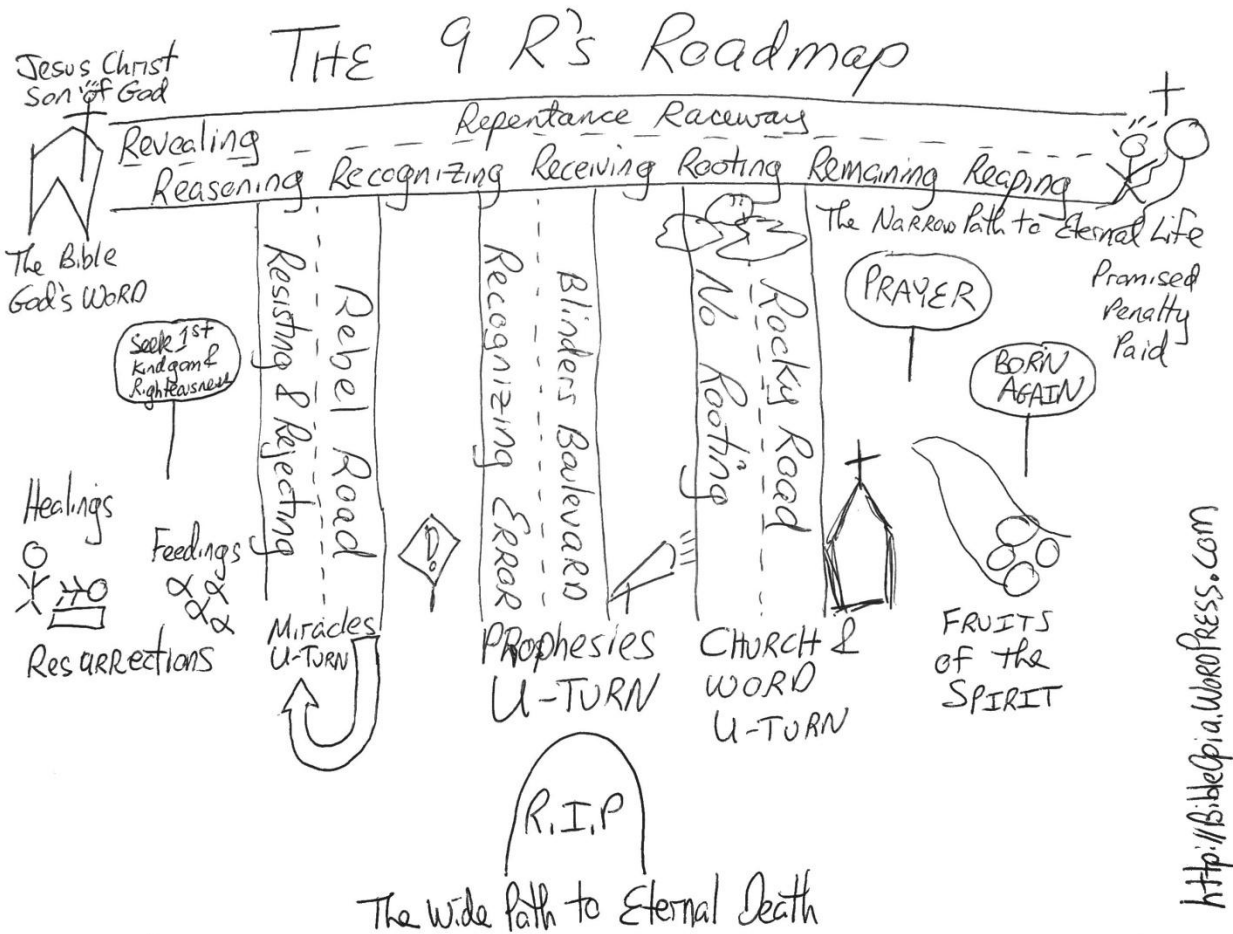 THE 9 R's Roadmap
Jesus Christ
Son of God
Repentance Raceway
Revealing
Reasoning Recognizing Receiving Rooting Remaining Reaping
The Narrow Path to Eternal Life
The Bible
God's WORD
Promised
Penalty
Paid
Resisting & Rejecting
Rebel Road
Recognizing ERROR
Blinders Boulevard
No Rooting
Rocky Road
PRAYER
BORN
AGAIN
Seek 1st
Kindgom &
Righteousness
Healings
Feedings
Resurrections
Miracles
U-TURN
PRophesies
U-TURN
CHURCH &
WORD
U-TURN
FRUITS
of the
SPIRIT
R.I.P
The Wide Path to Eternal Death
http://BibleOpia.WordPress.com